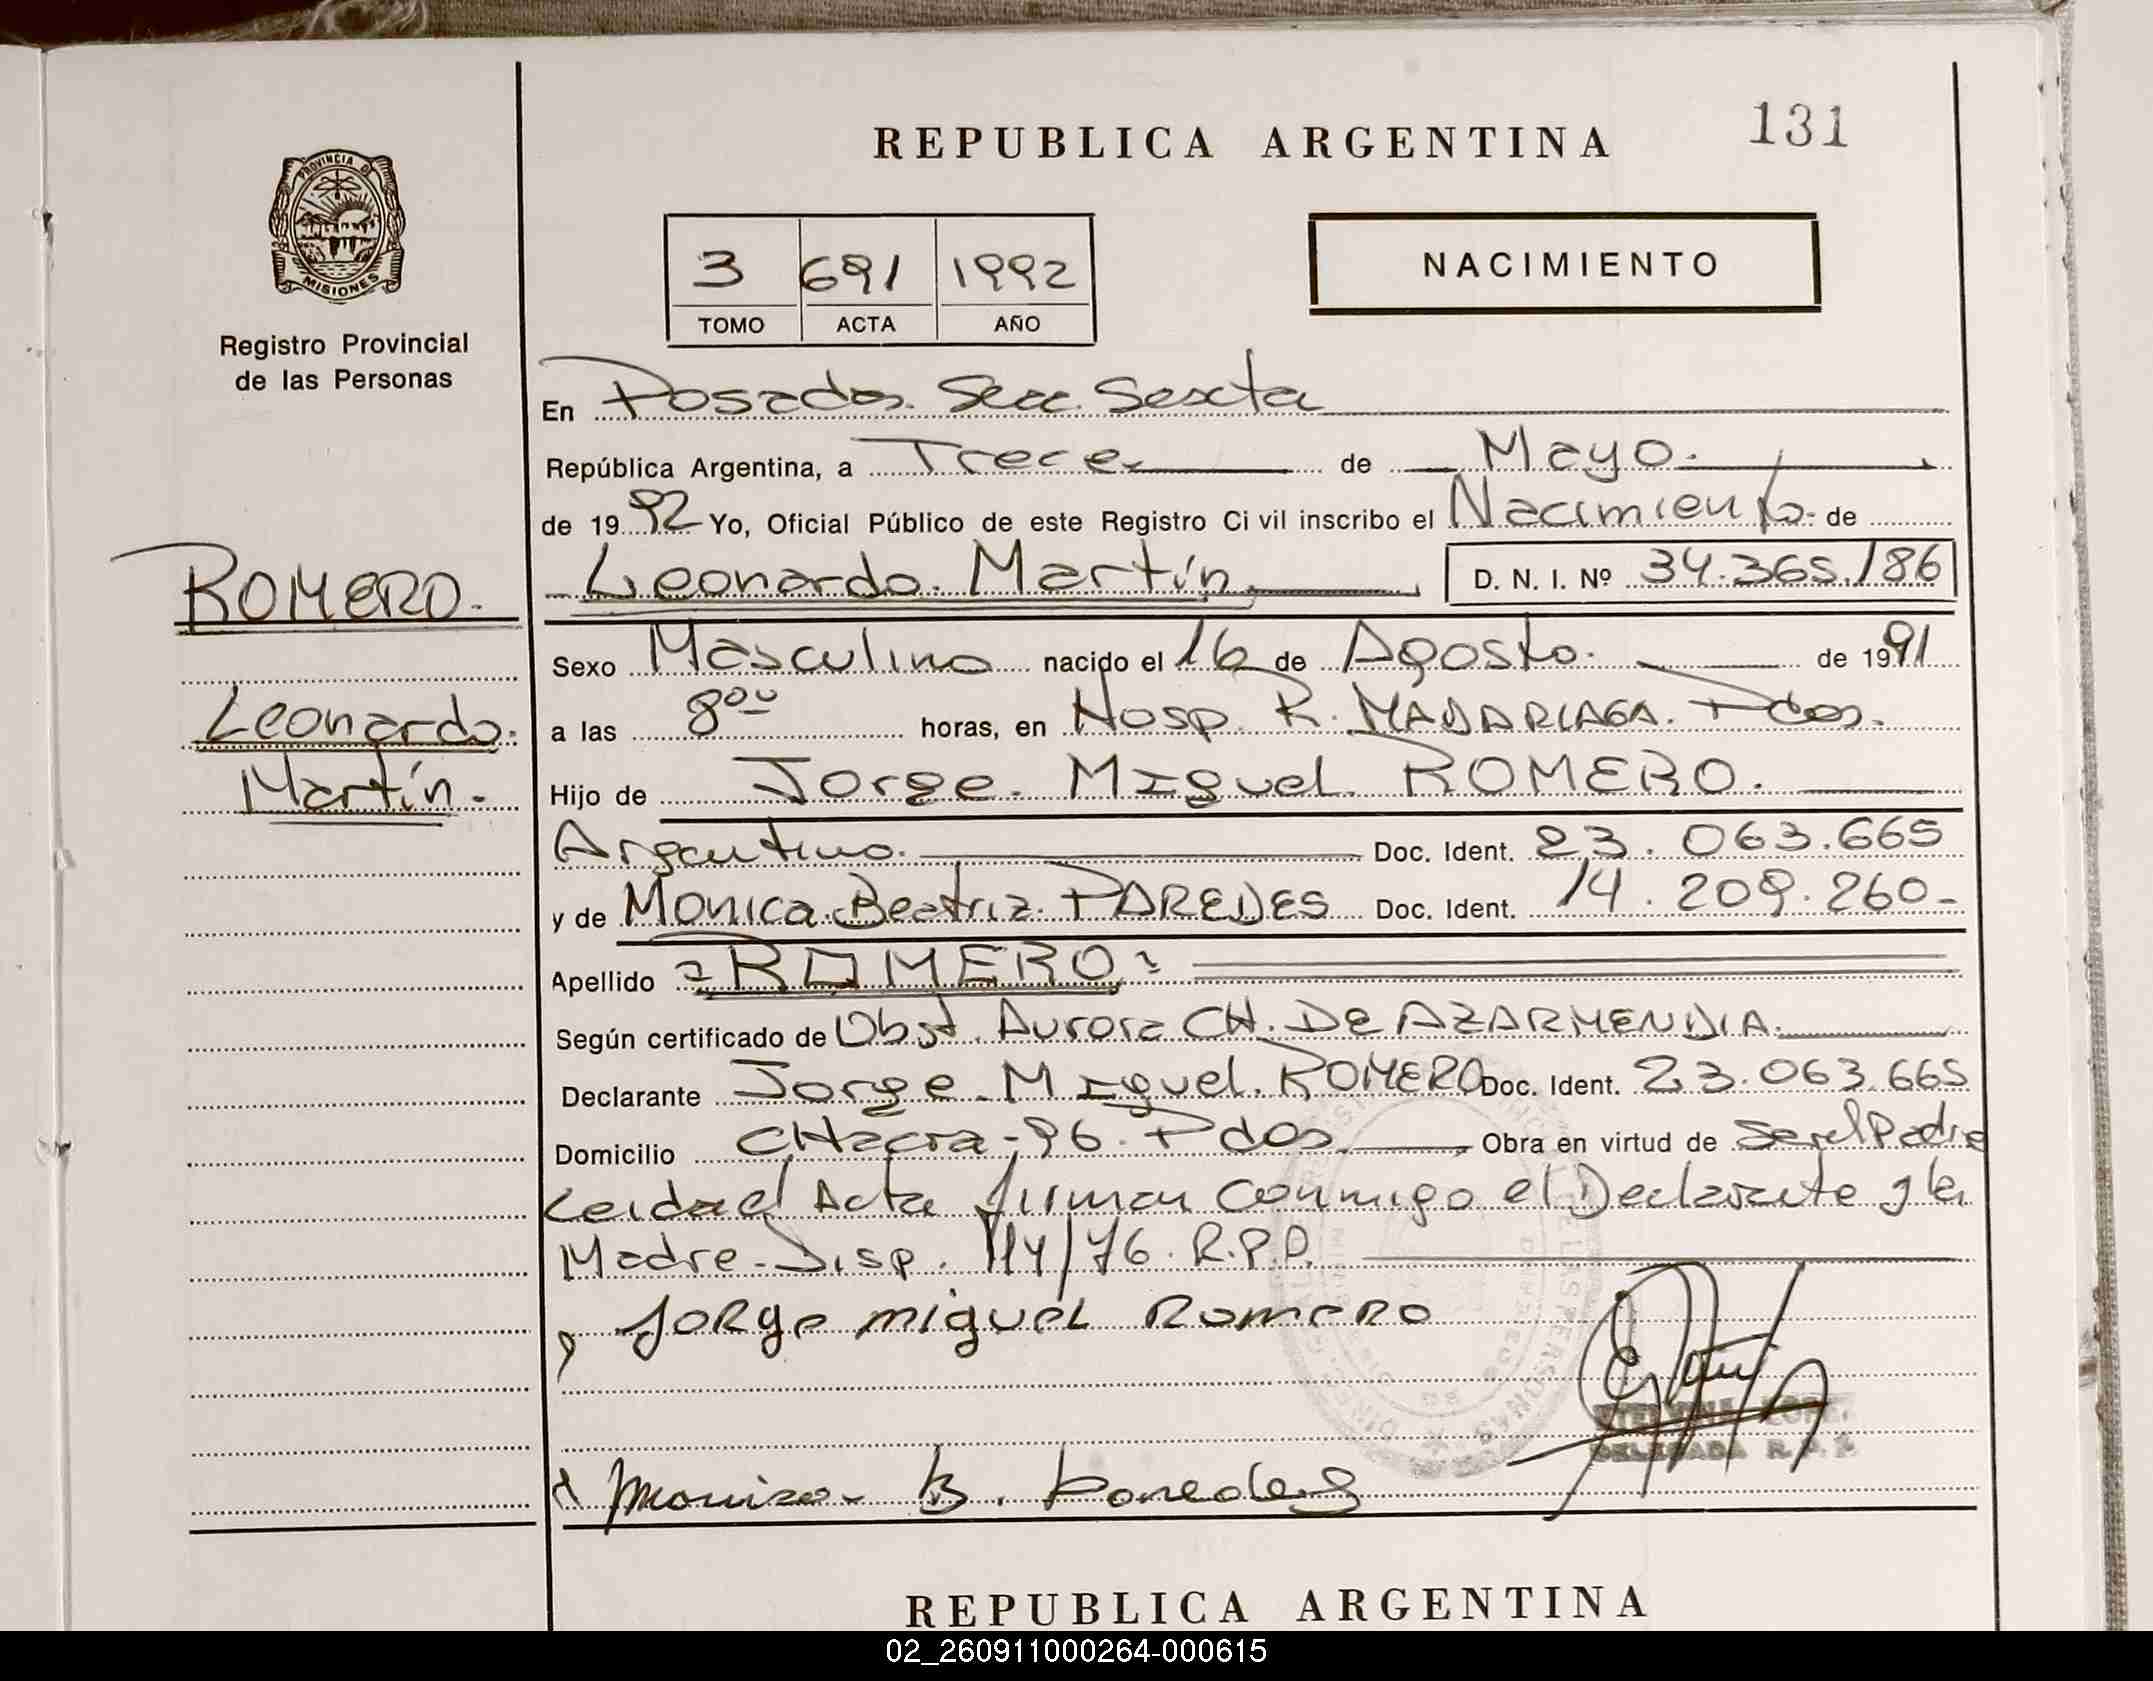 131
REPUBLICA ARGENTINA
PROVINCIA DE
MISIONES
Registro Provincial
de las Personas
3 691 1992
TOMO ACTA AÑO
NACIMIENTO
En Posadas. Secc. Sexta
República Argentina, a Trece de Mayo.
de 1992 Yo, Oficial Público de este Registro Ci vil inscribo el Nacimiento de
ROMERO.
Leonardo. Martín.
Leonardo. Martín D. N. I. Nº 34.365.186
Sexo Masculino nacido el 16 de Agosto. de 1991
a las 8⁰⁰ horas, en Hosp. R. MADARIAGA. Pdas.
Hijo de Jorge. Miguel. ROMERO.
Argentino. Doc. Ident. 23.063.665
y de Monica. Beatriz. PAREDES Doc. Ident. 14.209.260-
Apellido = ROMERO =
Según certificado de Obst. Aurora CH. DE AZARMENDIA.
Declarante Jorge. Miguel. ROMERO Doc. Ident. 23.063.665
Domicilio CHacra-96. Pdas Obra en virtud de Ser el Padre
Leida el Acta firman conmigo el Declarante y la
Madre-Disp. 114/76. R.P.P.
Jorge miguel Romero
DELEGADA R.P.P.
Monica B. Paredes
REPUBLICA ARGENTINA
02_260911000264-000615